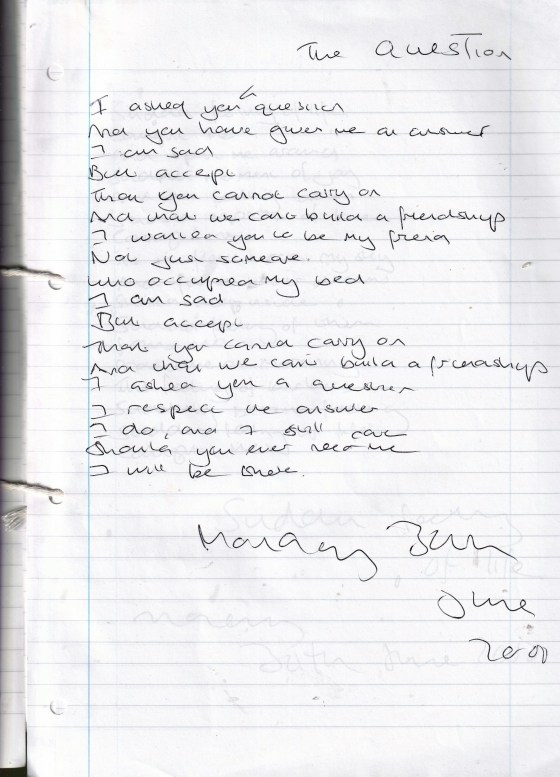 The Question
I asked you a question
And you have given me an answer
I am sad
But accept
That you cannot carry on
And that we cant build a friendship
I wanted you to be my friend
Not just someone.
who occupied my bed
I am sad
But accept
That you cannot carry on
And that we cant build a friendship
I asked you a question
I respect the answer
I do, and I still care
Should you ever need me
I will be there.
June
2000